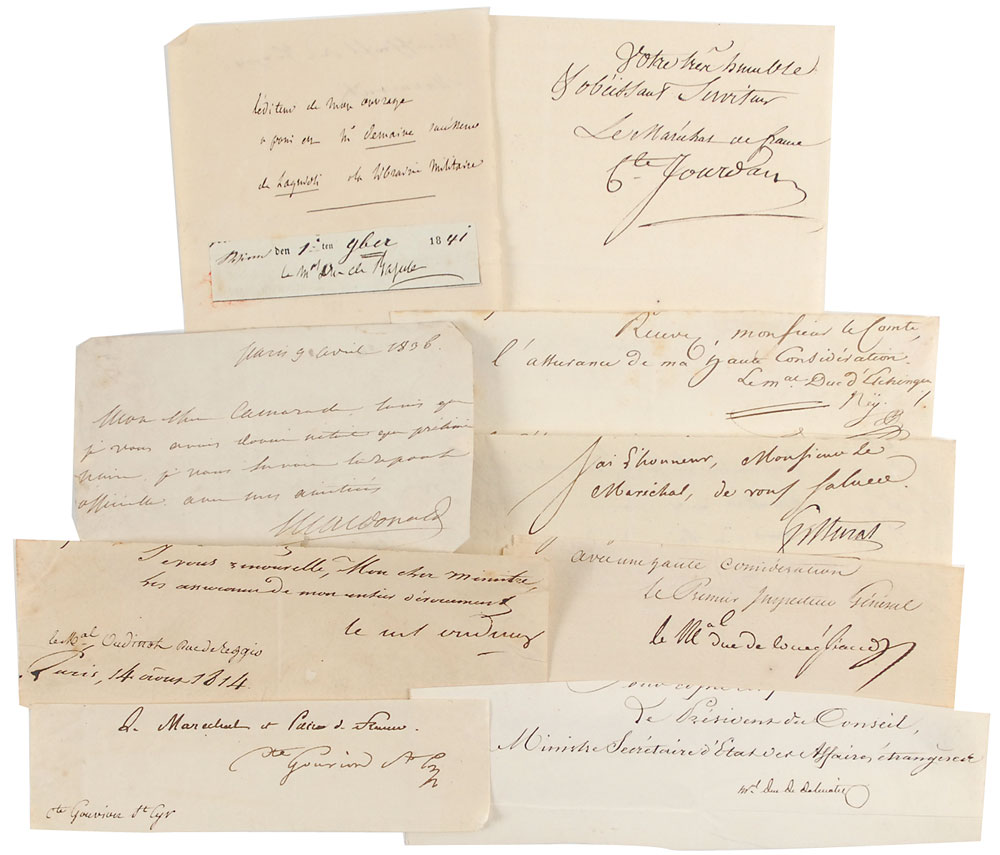 l'éditeur de mon ouvrage
à paris est Mr
de la librairie Militaire
den 1. ten 9ber 1841
le Mal Duc de Raguse
Votre très humble
& obéissant Serviteur
Le Maréchal de france
Cte Jourdan
Paris 9 avril 1836
Mon cher Camarade
je vous
officielle avec mes amitiés
Macdonald
Recevez, monsieur le Comte,
l'assurance de ma haute Considération.
Le mal Duc d'Elchingen
Ney.
J'ai l'honneur, Monsieur le
Maréchal, de vous saluer.
Murat
Je vous renouvelle, Mon cher ministre,
les assurances de mon entier dévouement
le Mal oudinot
le Mal Oudinot Duc de Reggio
Paris, 14 août 1814.
avec une haute considération
Le Premier Inspecteur Général
le Mal duc de Conegliano
Le Maréchal et Pair de France.
Cte Gouvion St Cyr
Cte Gouvion St Cyr
Le Président du Conseil,
Ministre Secrétaire d'Etat des Affaires étrangères
Mal duc de Dalmatie